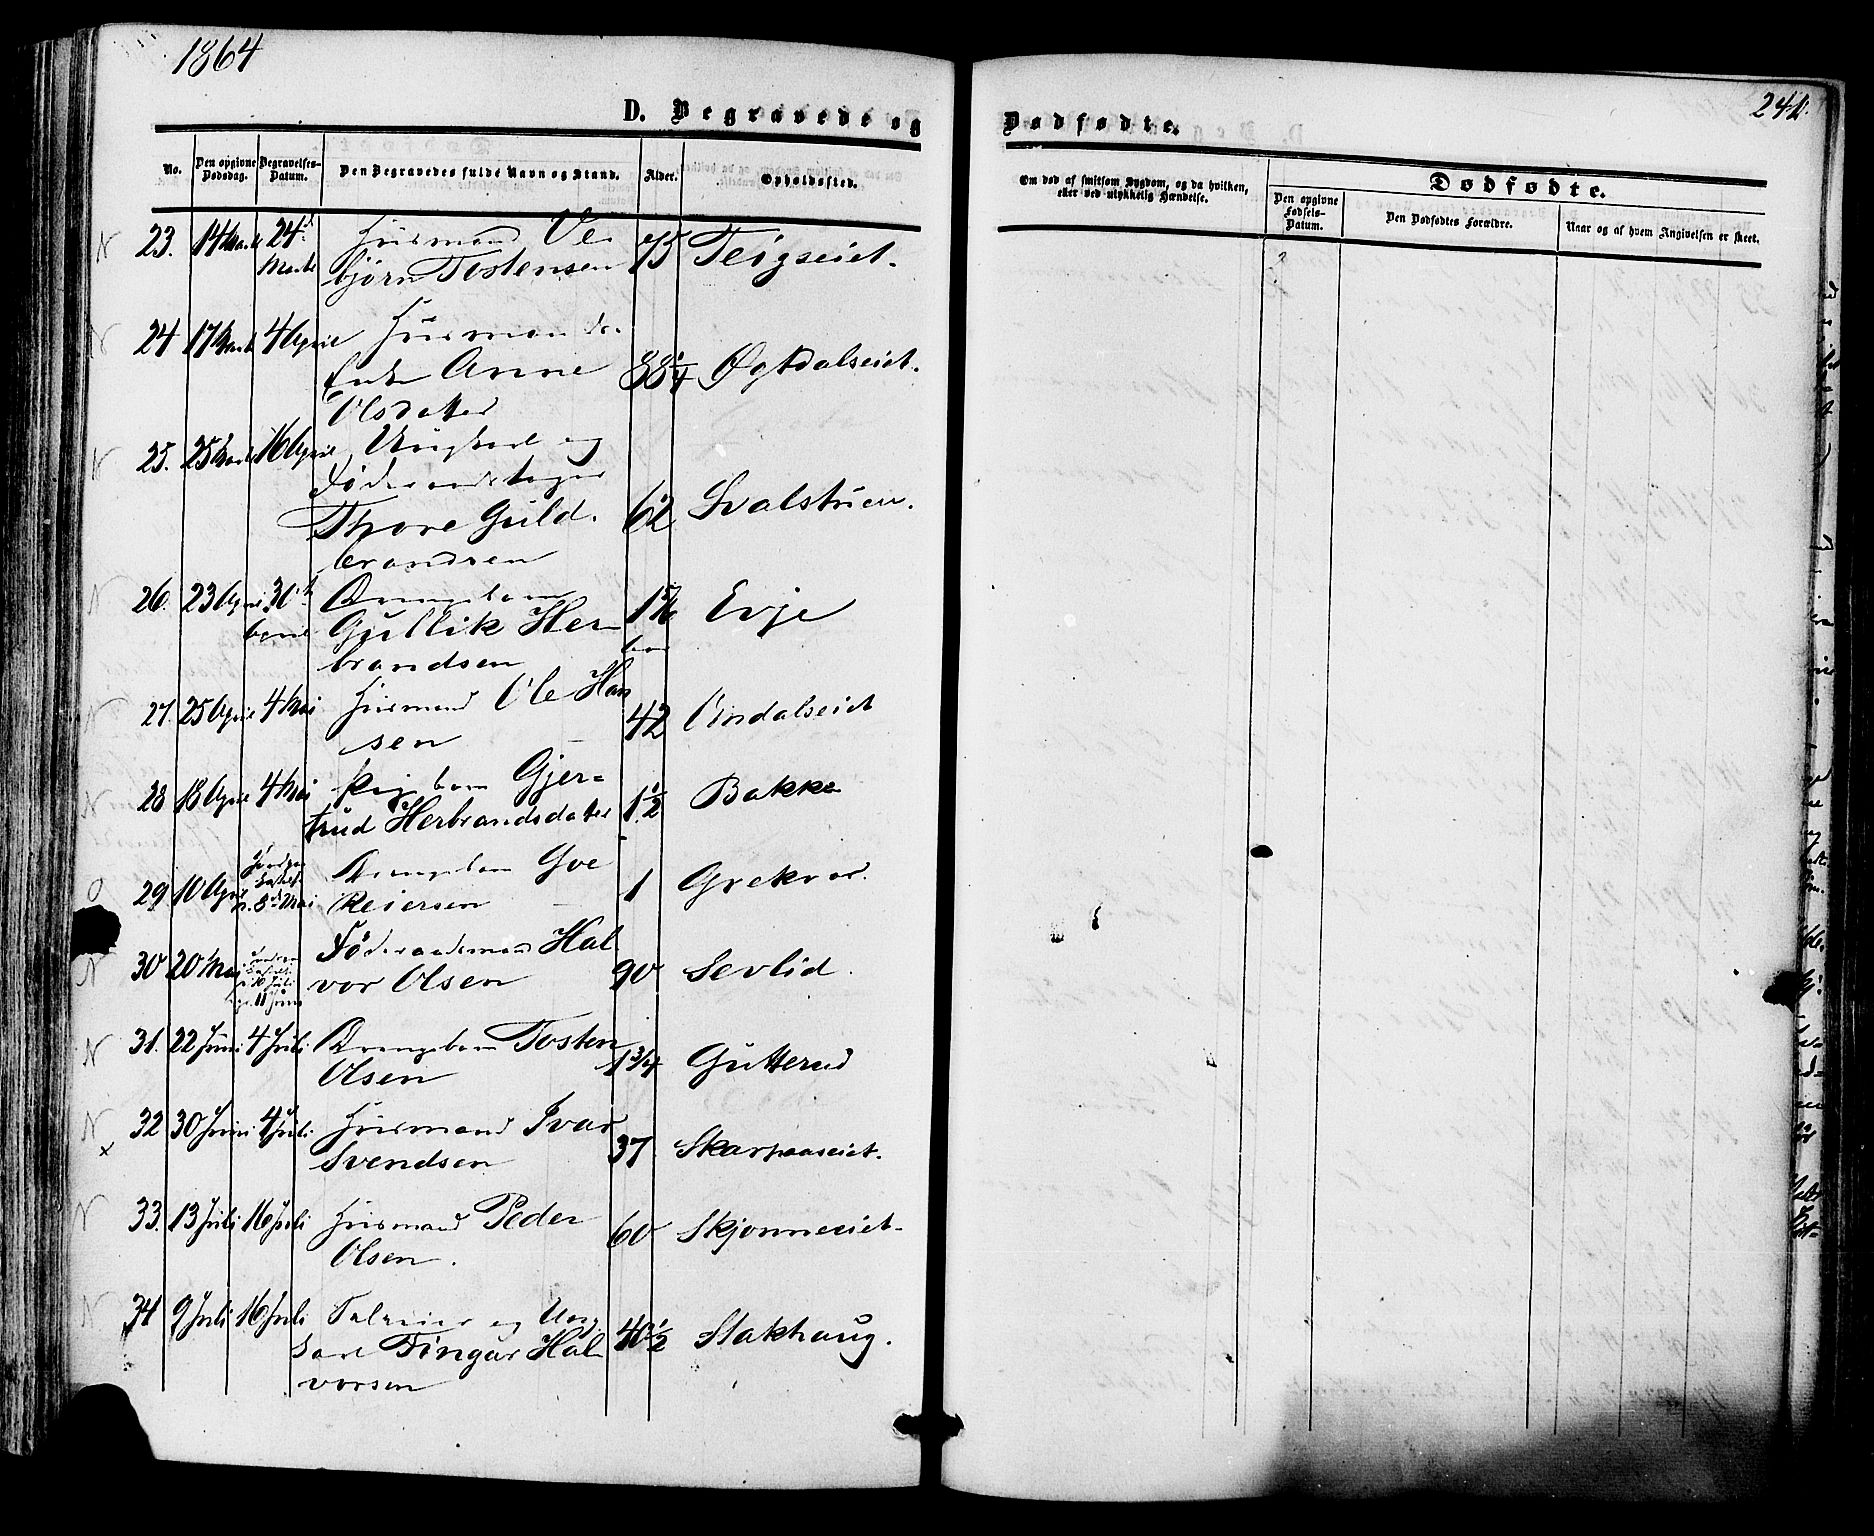 1864
D. Begravede og
Dødfødte.
241.
No.
Den opgivne Dødsdag.
Begravelses-Datum.
Den Begravedes fulde Navn og Stand.
Alder.
Opholdssted.
Om død af smitsom Sygdom, og da hvilken,
eller ved ulykkelig Hændelse.
Dødfødte.
Den opgivne Fødsels-Datum.
Den Dødfødtes Forældre.
Naar og af hvem Angivelsen er skeet.
N 23. 14 Marts 24d Marts Huusmand Ve
bjørn Tostensen 75 Teigseiet.
N 24 17 Marts 4 April Huusmands
Enke Anne 88 1/4
Olsdatter
N 25. 25 Marts 16 April Ungkarl og
Føderaadstager
Thore Guld. 62 Svalstuen.
brandsen
N 26. 23 April 30te April Drengebarn
Gullik Her 1 5/6 Evje
brandsen
N 27. 25 April 4 Mai Huusmand Ole Han
sen 42 Undalseiet
N 28 18 April 4 Mai Pigebarn Gjer=
trud Herbrandsdatter 1 1/2 Bakke
O 29 10 April 8de Mai Drengebarn Gve
Reiersen 1
N 30 20 Mai Føderaadsmand Hal
vor Olsen 90 Sevlid.
N 31. 22 Juni 4 Juli Drengebarn Tosten
Olsen 1 3/4 Gutterud
N 32 30 Juni 4 Juli Huusmand Ivar
x Svendsen 37 Skarpaaseiet.
N 33. 13 Juli 16 Juli Huusmand Peder
Olsen. 60 Skjønneeiet
N 34 9 Juli 16 Juli og Ung
karl Tingar Hal 40 1/2 Stakhaug.
vorsen